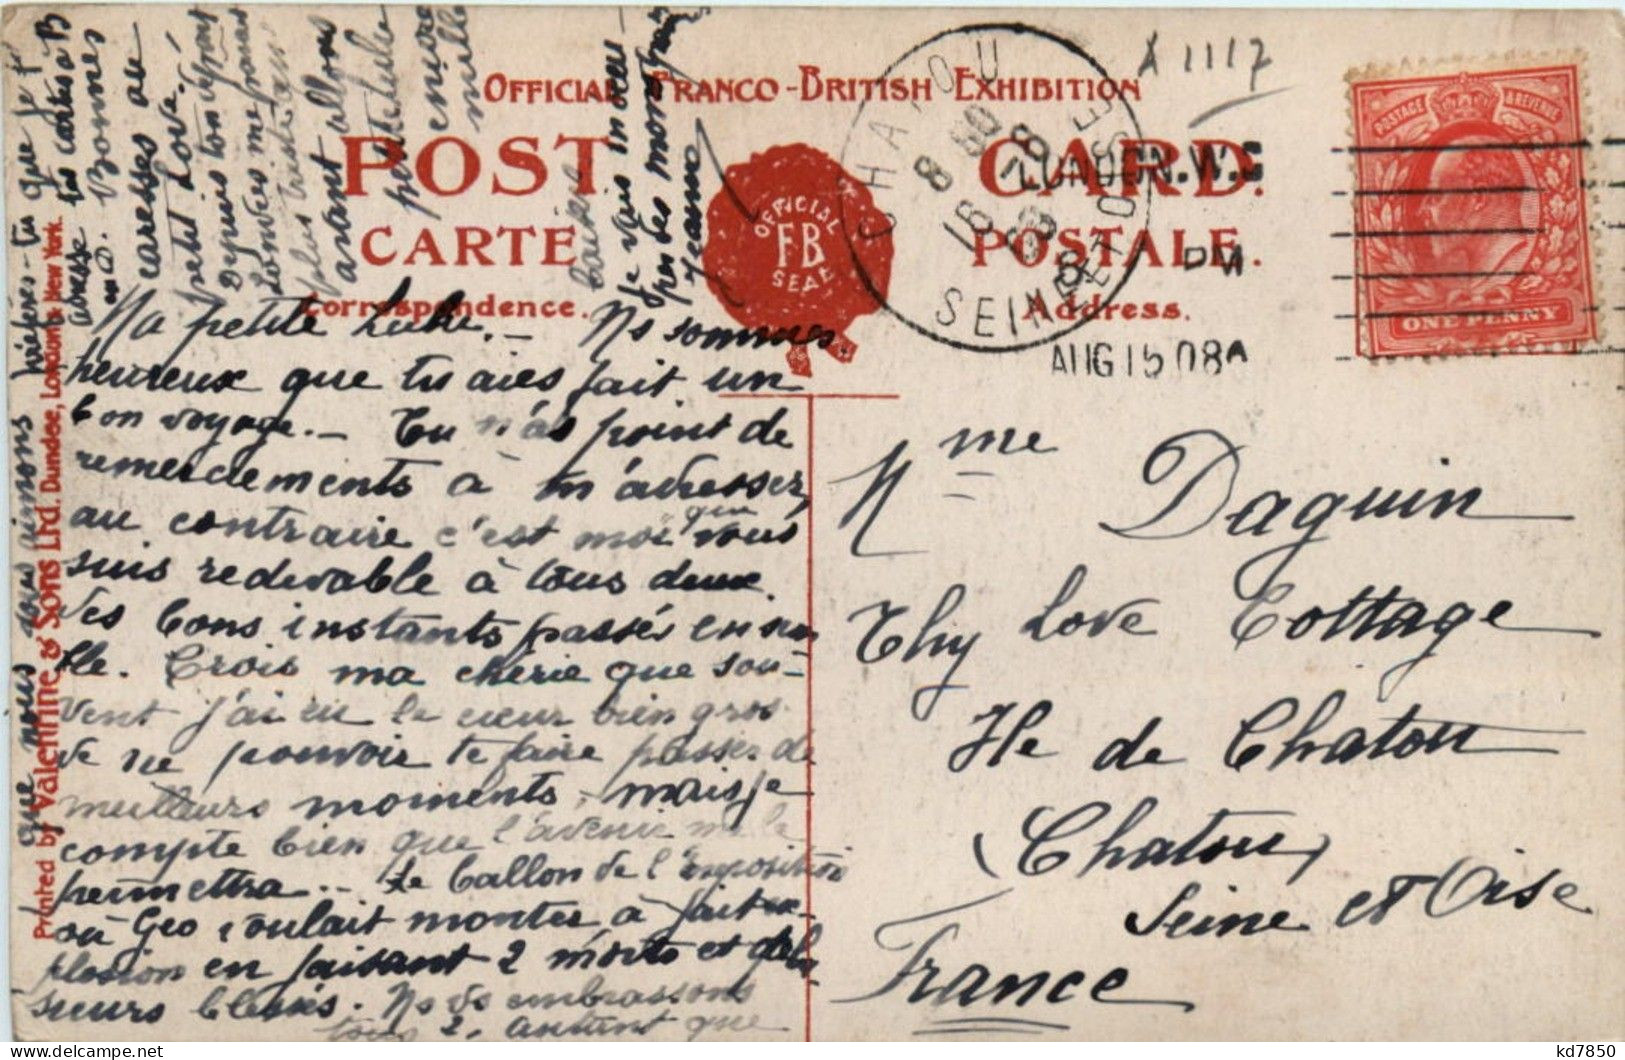 OFFICIAL FRANCO-BRITISH EXHIBITION
POST CARD.
CARTE POSTALE.
Correspondence. Address.
OFFICIAL
FB
SEAL
A 1117
CHATOU
SEINE ET OISE
LONDON.W.
PM
AUG 15 08
POSTAGE & REVENUE
ONE PENNY
Ma petite Lulu. — Ns sommes
heureux que tu aies fait un
bon voyage. — Tu n'as point de
remerciements à m'adresser,
au contraire c'est moi qui vous
suis redevable à tous deux
des bons instants passés ensem
ble. Crois ma chérie que sou-
vent j'ai eu le cœur bien gros
de ne pouvoir te faire passer de
meilleurs moments, mais je
compte bien que l'avenir me le
permettra. — Le ballon de l'Exposition
où Geo voulait monter a fait ex-
plosion en faisant 2 morts et plu
sieurs blessés. Ns vs embrassons
tous 2, autant que
que nous vous aimons
que je t'
adresse tes cartes à B
Bonnes
caresses au
petit Lové.
Depuis ton départ
Londres me paraît
plus triste
avant allons
peut être
encore
mille
baisers
Je vais
Jeanne
Mme Daguin
Thy Love Cottage
Ile de Chatou
(Chatou)
Seine et Oise
France
Printed by Valentine & Sons Ltd. Dundee, London & New York.
kd7850